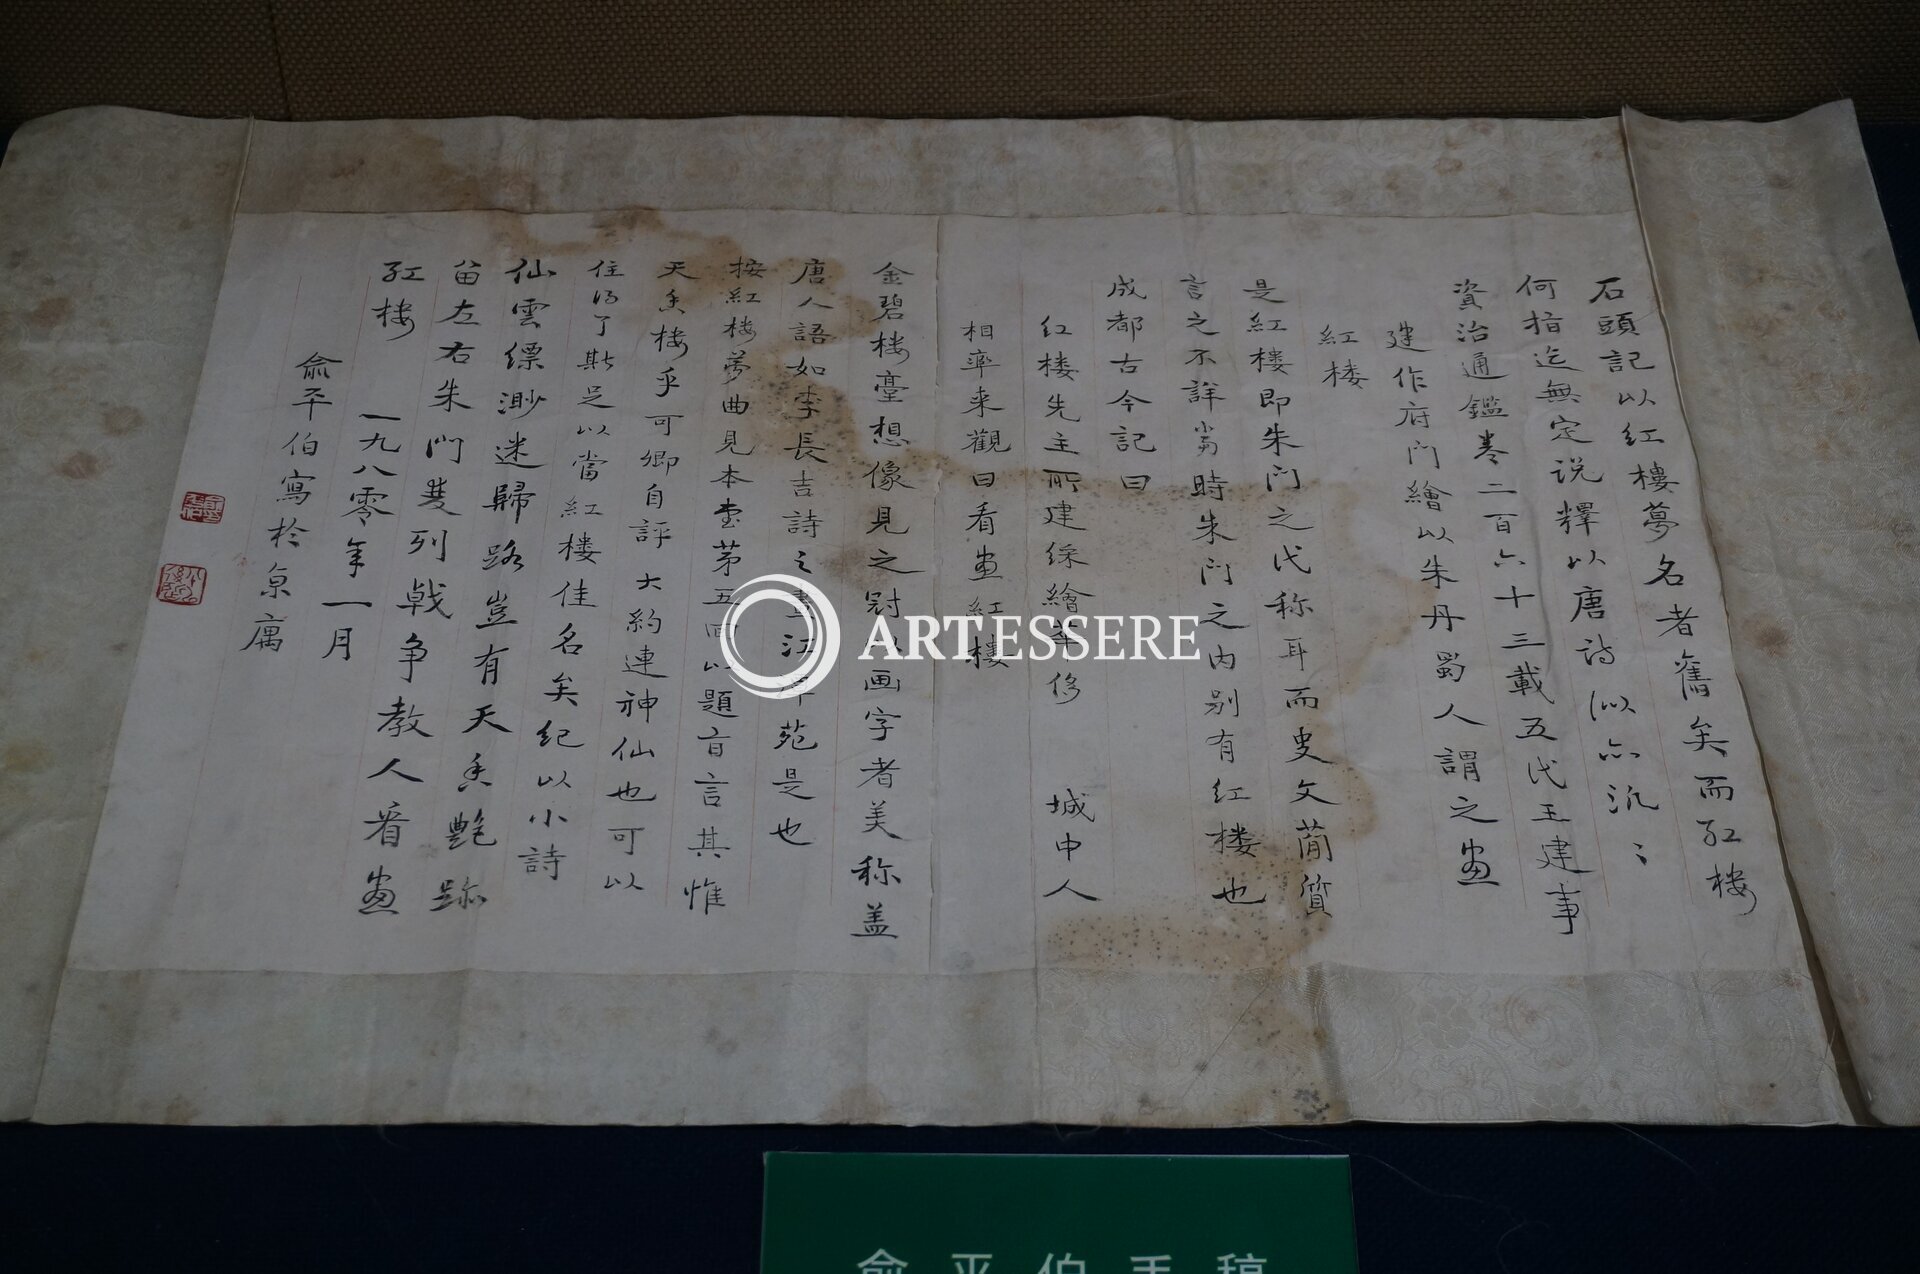 石頭記以红樓夢名者舊矣而红楼
何指迄無定说釋以唐詩似亦泛〻
資治通鑑卷二百六十三載五代王建事
建作府门繪以朱丹蜀人謂之畫
红楼
是红樓即朱门之代称耳而史文蕳質
言之不詳當時朱门之内别有红樓也
成都古今記曰
红樓先主所建綵繪华侈 城中人
相率来觀曰看畫红樓
金碧楼臺想像見之冠以画字者美称盖
唐人語如李長吉詩之畫江潭苑是也
按紅楼夢曲見本書第五回以題旨言其惟
天香楼乎可卿自評大約連神仙也可以
住得了斯足以當紅樓佳名矣纪以小詩
仙雲縹渺迷歸路豈有天香艷跡
留左右朱门雙列戟争教人看畫
红楼
一九八零年一月
俞平伯寫於京寓
ARTESSERE
俞平伯手稿